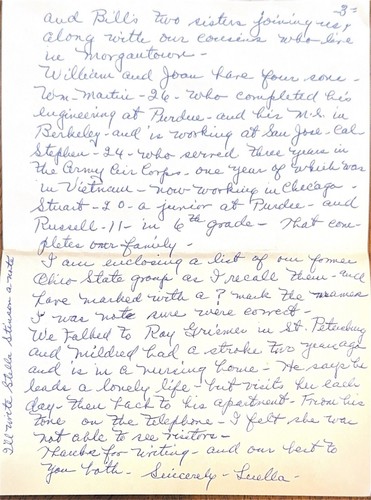 -3-
and Bill's two sisters joining us,
along with our cousins who live
in Morgantown -
William and Joan have four sons -
Wm - Martin - 26 - who completed his
engineering at Purdue - and his M.S. in
Berkeley - and is working at San Jose - Cal -
Stephen - 24 - who served three years in
the Army Air Corps - one year of which was
in Vietnam - now working in Chicago -
Stuart - 20 - a junior at Purdue - and
Russell - 11 - in 6th grade - That com-
pletes our family -
I am enclosing a list of our former
Ohio State group as I recall them - and
have marked with a ? mark the names
I was not sure were correct -
We talked to Ray Griesmer in St. Petersburg
and Mildred had a stroke two years ago
and is in a nursing home - He says he
leads a lonely life - but visits her each
day - then back to his apartment - From his
tone on the telephone - I felt she was
not able to see visitors -
Thanks for writing - and our best to
you both - Sincerely - Luella -
I'll write Stella Stinson a note